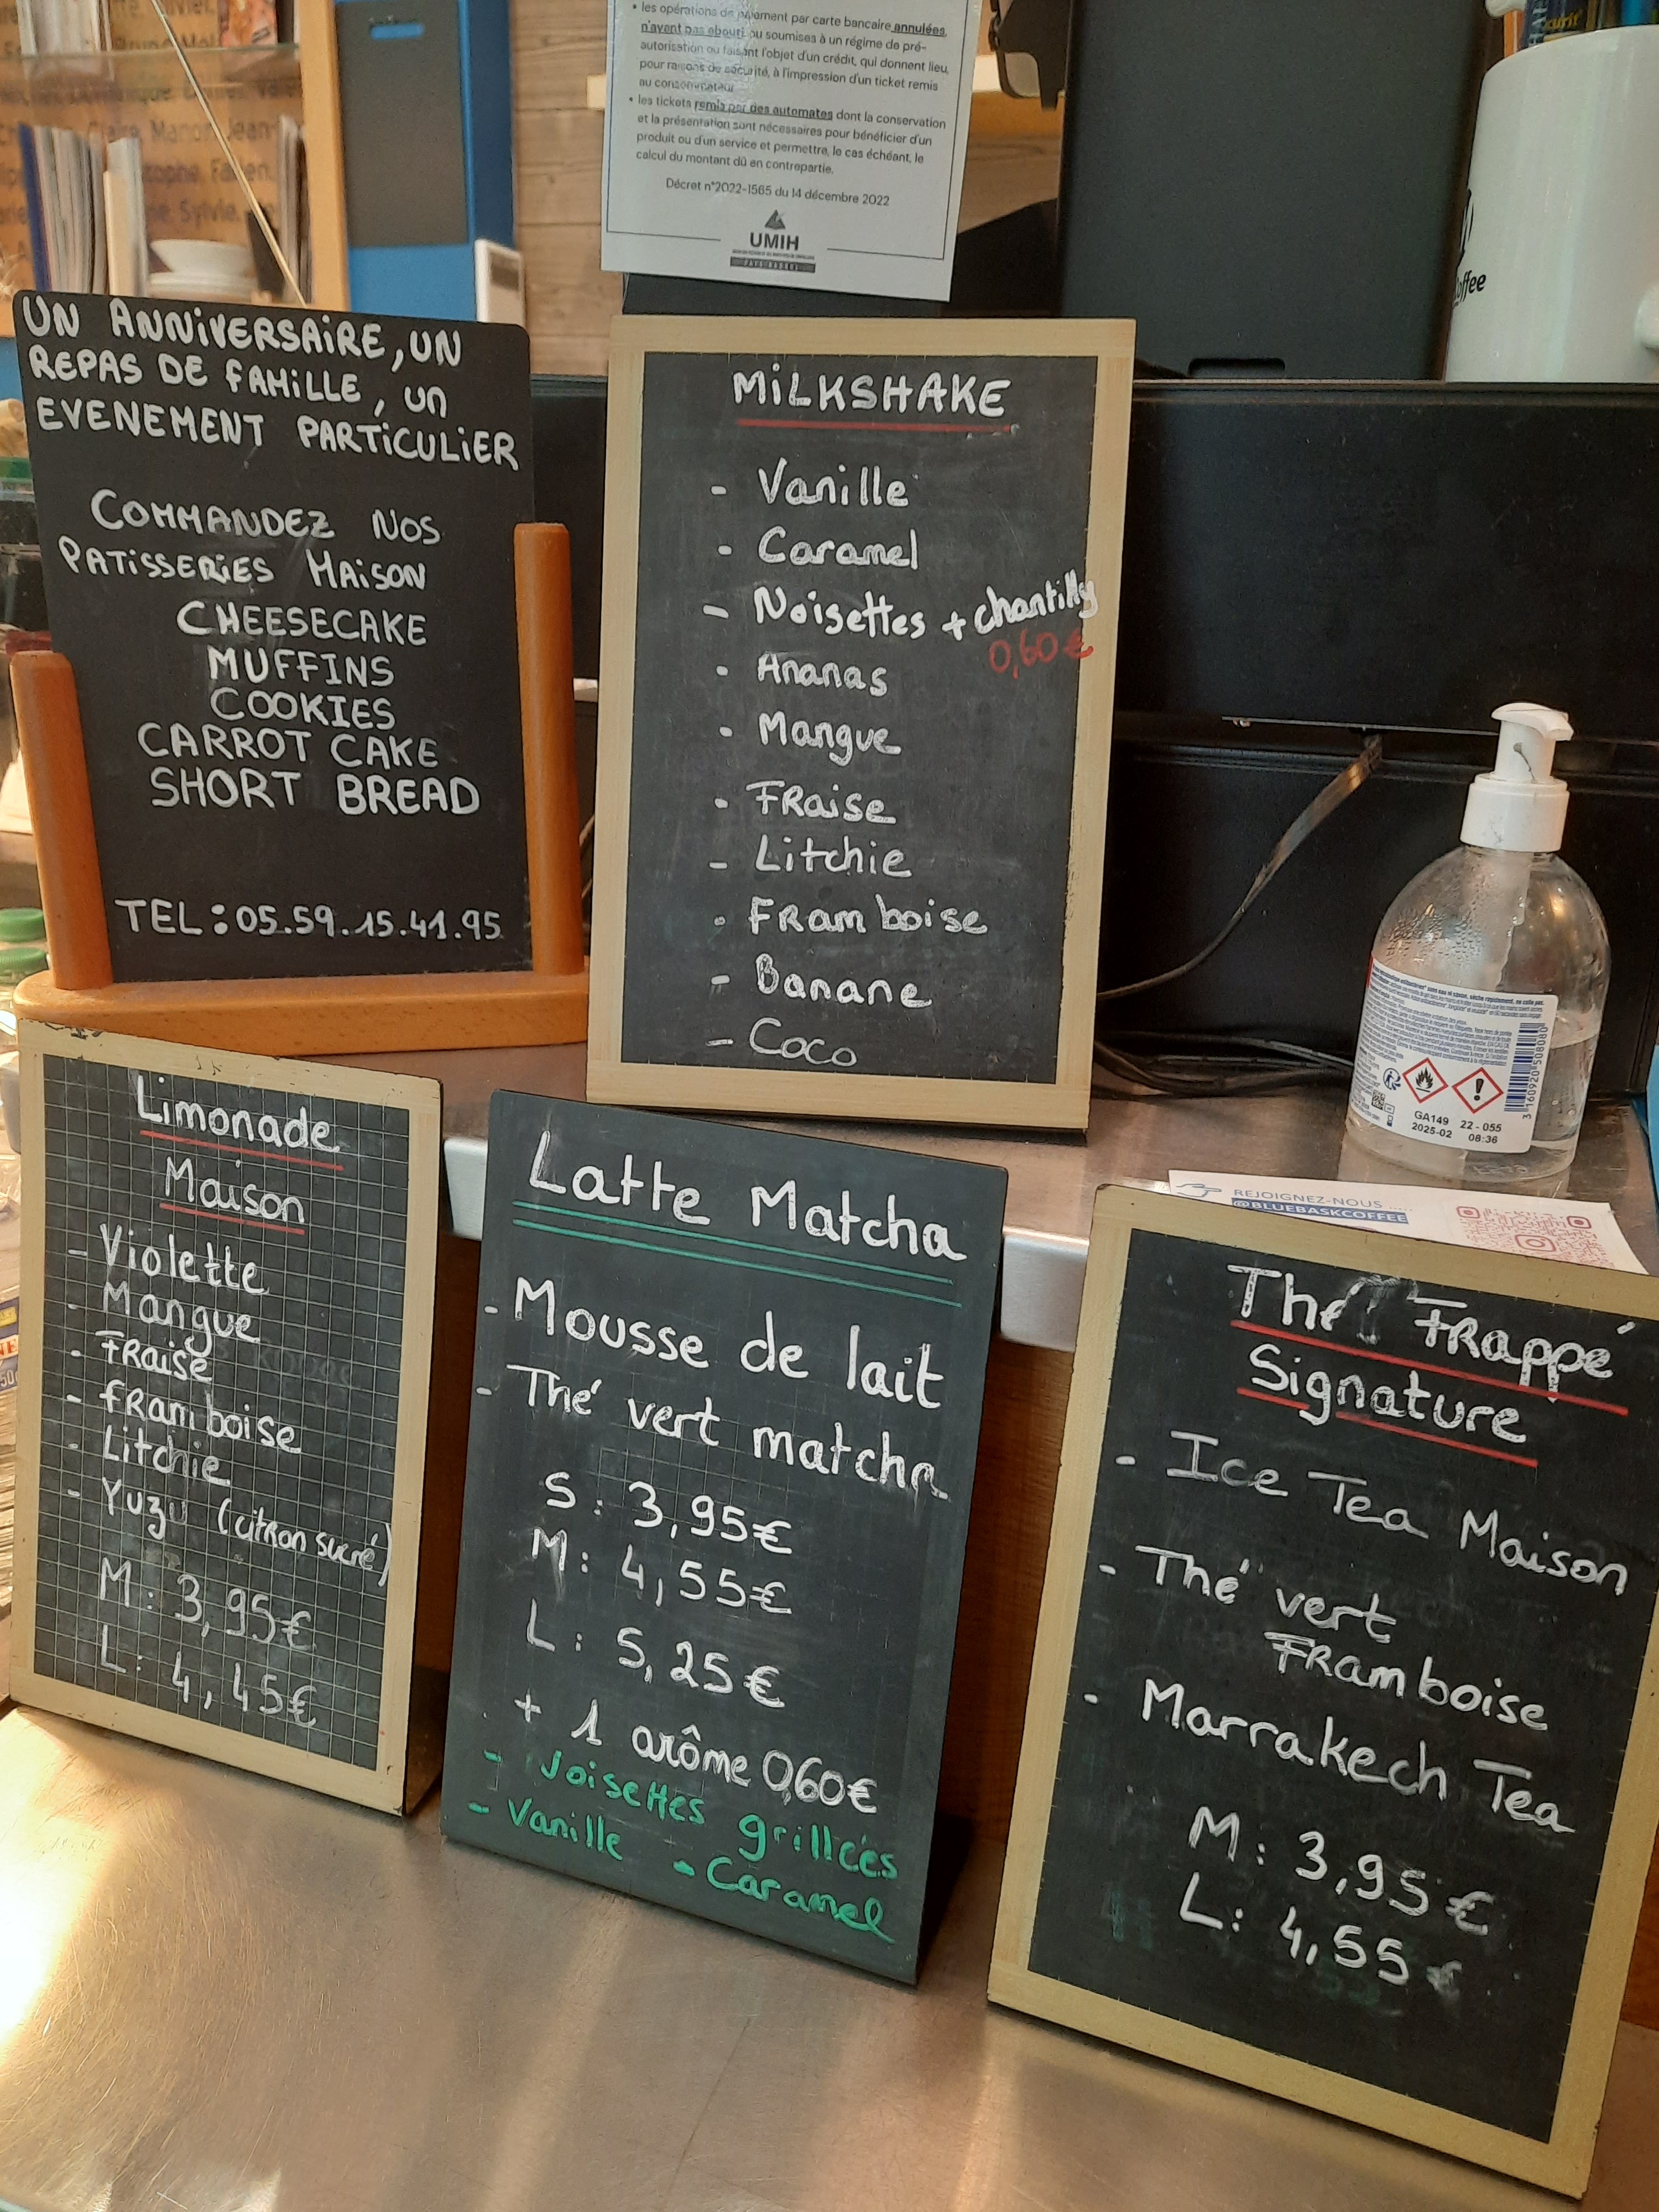 • les opérations de paiement par carte bancaire annulées,
n'ayant pas abouti ou soumises à un régime de pré-
autorisation ou faisant l'objet d'un crédit, qui donnent lieu,
pour raisons de sécurité, à l'impression d'un ticket remis
au consommateur
• les tickets remis par des automates dont la conservation
et la présentation sont nécessaires pour bénéficier d'un
produit ou d'un service et permettre, le cas échéant, le
calcul du montant dû en contrepartie.
Décret n°2022-1565 du 14 décembre 2022
UMIH
UN ANNIVERSAIRE, UN
REPAS DE FAMILLE, un
EVENEMENT PARTICULIER
COMMANDEZ NOS
PATISSERIES MAISON
CHEESECAKE
MUFFINS
COOKIES
CARROT CAKE
SHORT BREAD
TEL : 05.59.15.41.95
MILKSHAKE
- Vanille
- Caramel
- Noisettes + chantilly
0,60€
- Ananas
- Mangue
- FRaise
- Litchie
- FRamboise
- Banane
- Coco
GA149 22-055
2025-02 08:36
3 160920 508080
REJOIGNEZ-NOUS
@BLUEBASKCOFFEE
Limonade
Maison
- Violette
- Mangue
- FRaise
- fRamboise
- Litchie
- Yuzu (citron sucré)
M: 3,95€
L: 4,45€
Latte Matcha
- Mousse de lait
- Thé vert matcha
S: 3,95€
M: 4,55€
L: 5,25€
+ 1 arôme 0,60€
- Noisettes grillées
- Vanille - Caramel
Thé FRappé
Signature
- Ice Tea Maison
- Thé vert
FRamboise
- Marrakech Tea
M: 3,95€
L: 4,55€